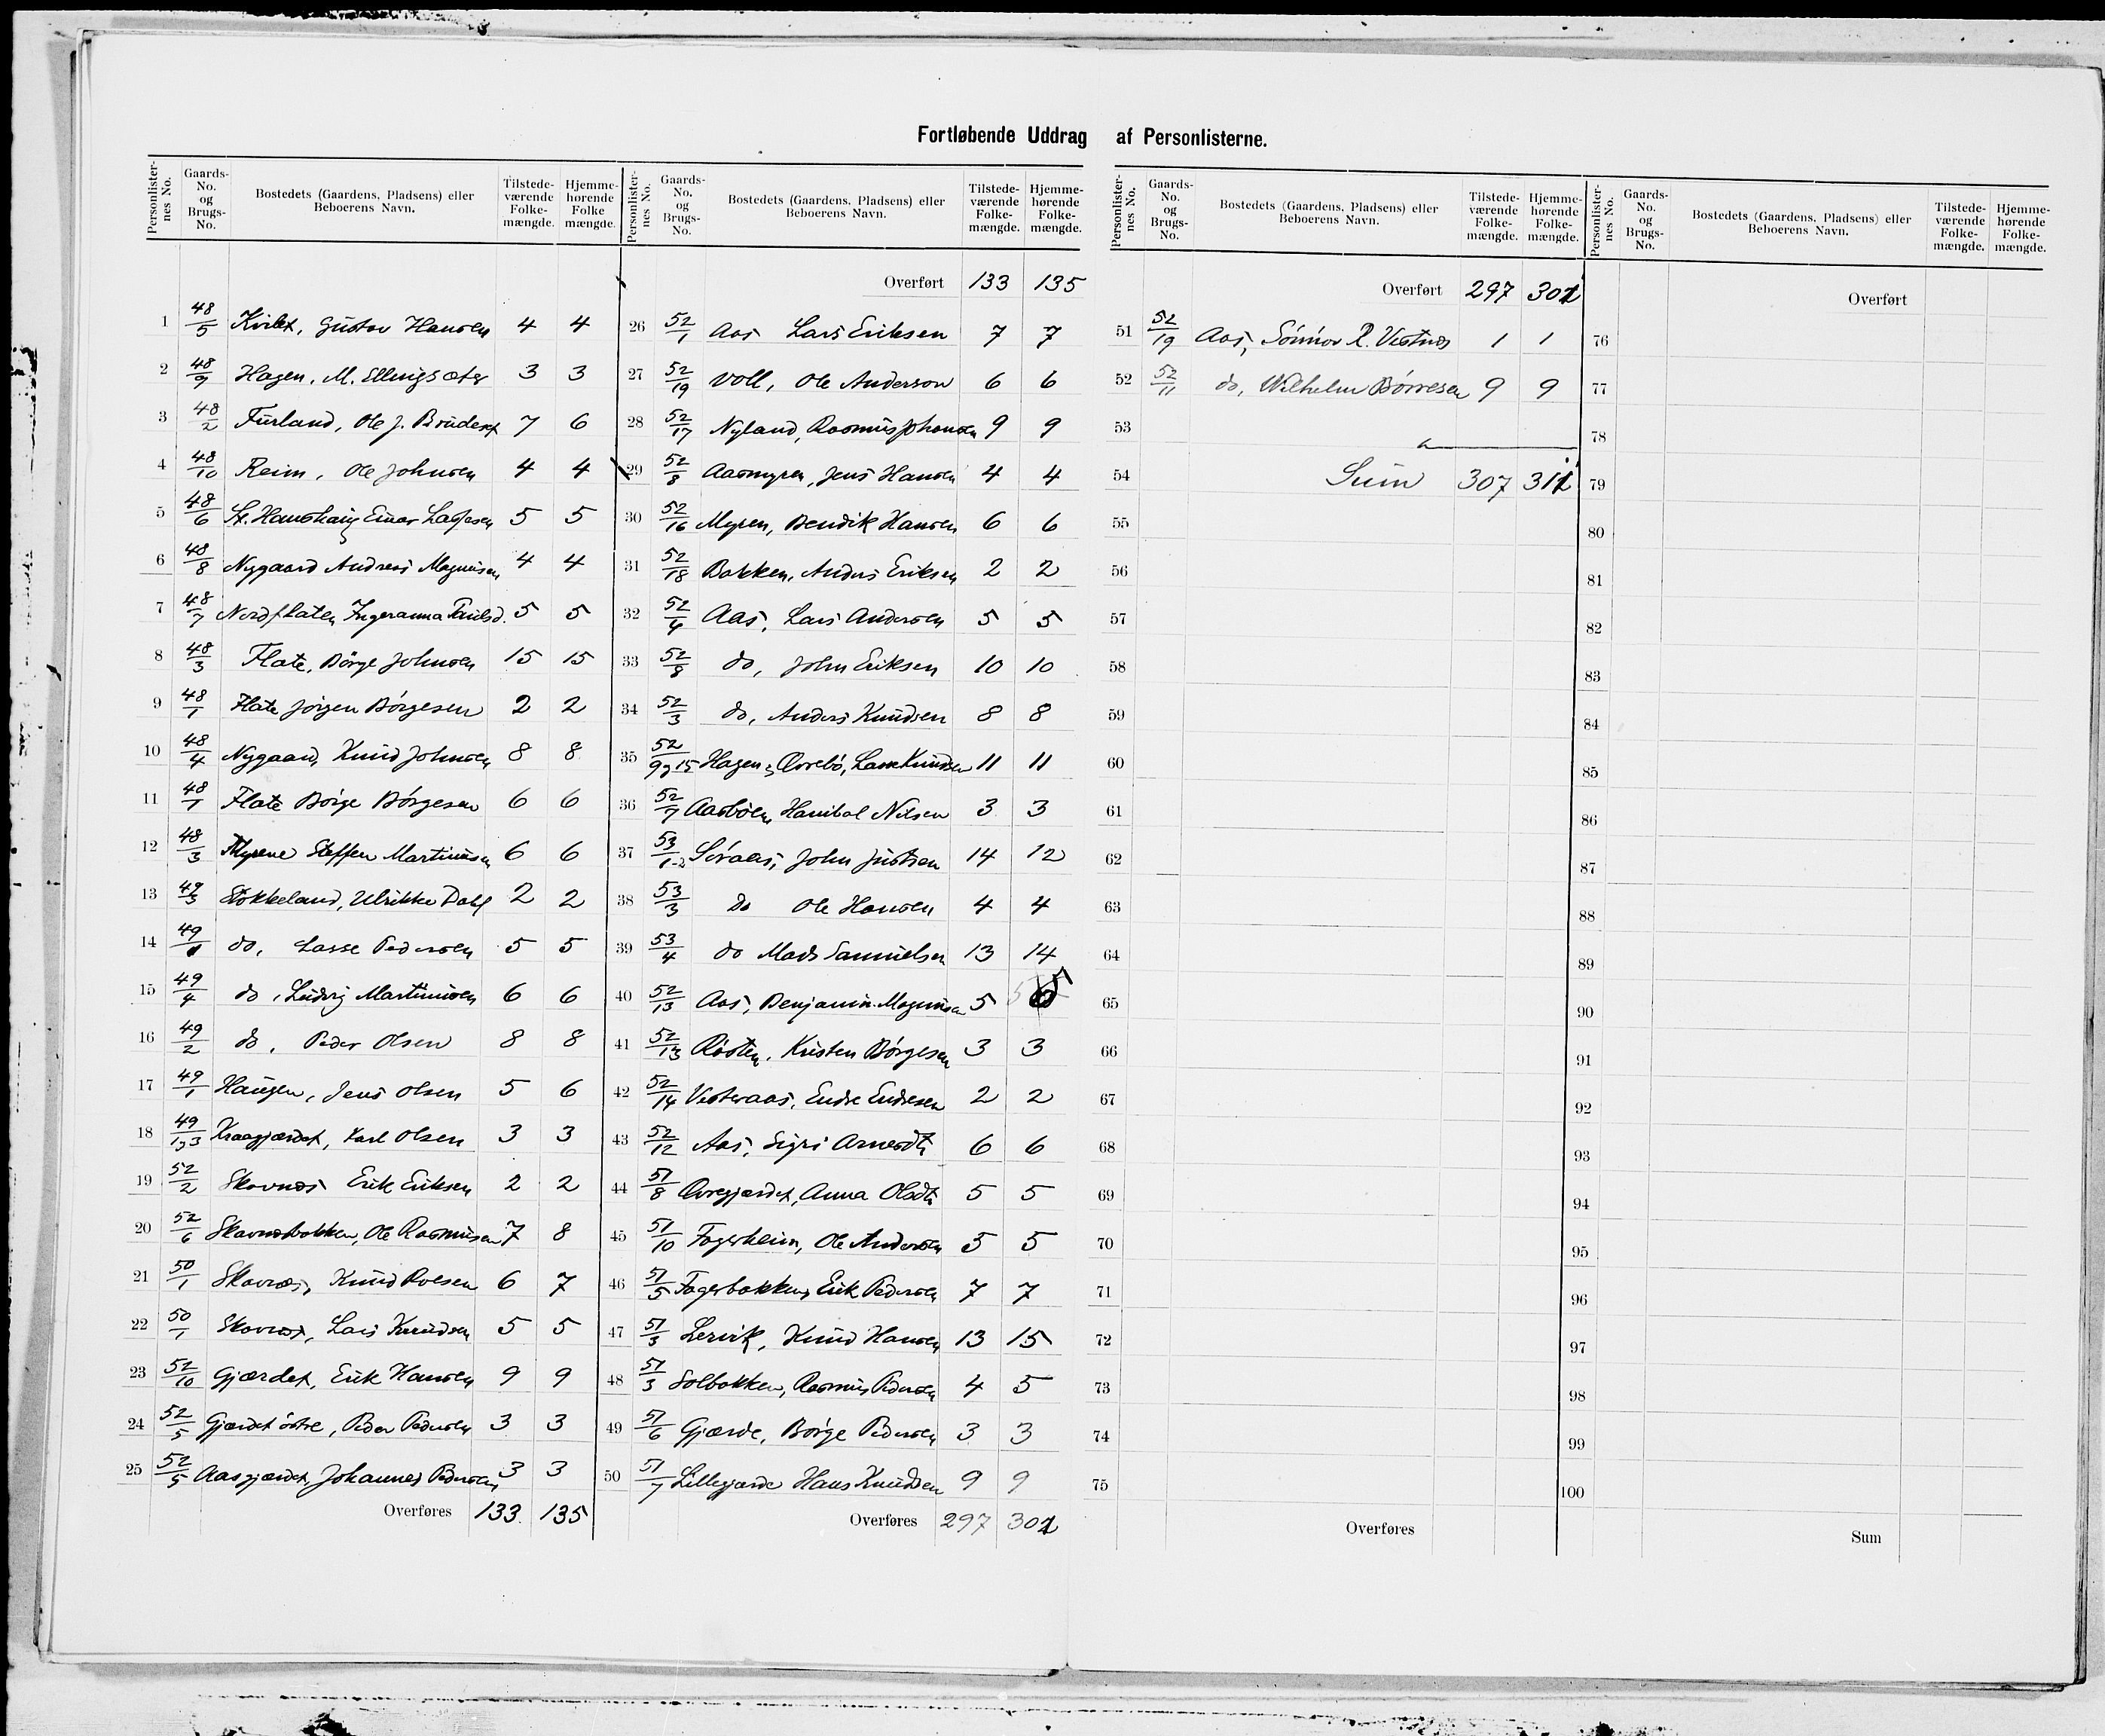 Fortløbende Uddrag af Personlisterne.
Personlisternes No. Gaards-No. og Brugs-No. Bostedets (Gaardens, Pladsens) eller Beboerens Navn. Tilstedeværende Folkemængde. Hjemmehørende Folkemængde.
1 48/5 Kirket, Gustav Hansen 4 4
2 48/9 Hagen, M. Ellingsæter 3 3
3 48/2 Furland, Ole J. 7 6
4 48/10 Reim, Ole Johnsen 4 4
5 48/6 St. Hanshaug Einar Lassesen 5 5
6 48/8 Nygaard Andreas Magnusen 4 4
7 48/7 Nordflaten Ingeranna Paulsd. 5 5
8 48/3 Flate, Børge Johnsen 15 15
9 48/1 Flate Jørgen Børgesen 2 2
10 48/4 Nygaard, Knud Johnsen 8 8
11 48/1 Flate Børge Børgesen 6 6
12 48/3 Myrene Steffen Martinusen 6 6
13 49/3 Stokkeland, Ulrikke Dahl 2 2
14 49/1 do, Lasse Pedersen 5 5
15 49/4 do, Ludvig Martinusen 6 6
16 49/2 do, Peder Olsen 8 8
17 49/1 Haugen, Jens Olsen 5 6
18 49/1,3 Kraagjærdet, Karl Olsen 3 3
19 52/2 Skavnes Erik Eriksen 2 2
20 52/6 Skavnesbakken, Ole Rasmusen 7 8
21 50/1 Skavnes, Knud Roesen 6 7
22 50/1 Skavnes, Lars Knudsen 5 5
23 52/10 Gjærdet, Erik Hansen 9 9
24 52/5 Gjærdet østre, Peder Pedersen 3 3
25 52/5 Aasgjærdet, Johannes Pedersen 3 3
Overføres 133 135
Personlisternes No. Gaards-No. og Brugs-No. Bostedets (Gaardens, Pladsens) eller Beboerens Navn. Tilstedeværende Folkemængde. Hjemmehørende Folkemængde.
Overført 133 135
26 52/1 Aas Lars Eriksen 7 7
27 52/19 Voll, Ole Anderson 6 6
28 52/17 Nyland, Rasmus Johansen 9 9
29 52/8 Aasmyren, Jens Hansen 4 4
30 52/16 Myren, Bendik Hansen 6 6
31 52/18 Bakken, Anders Eriksen 2 2
32 52/4 Aas, Lars Andersen 5 5
33 52/8 do, John Eriksen 10 10
34 52/3 do, Anders Knudsen 8 8
35 52/9,15 Hagen & Øvrebø, Lars Knudsen 11 11
36 52/7 Aasbøen, Hanibal Nilsen 3 3
37 53/1-2 Søraas, John Justsen 14 12
38 53/3 do Ole Hansen 4 4
39 53/4 do Mads Samuelsen 13 14
40 52/13 Aas, Benjamin Magnusen 5 5
41 52/13 Røsten, Kristen Børgesen 3 3
42 52/14 Vesteraas, Endre Endresen 2 2
43 52/12 Aas, Sigri Arnesdtr 6 6
44 51/8 Øvregjærdet, Anna Olsdtr 5 5
45 51/10 Fagerheim, Ole Andersen 5 5
46 51/5 Fagerbakken, Erik Pedersen 7 7
47 51/3 Lervik, Knud Hansen 13 15
48 51/3 Solbakken, Rasmus Pedersen 4 5
49 51/6 Gjærde, Børge Pedersen 3 3
50 51/7 Lillegjærde Hans Knudsen 9 9
Overføres 297 301
Personlisternes No. Gaards-No. og Brugs-No. Bostedets (Gaardens, Pladsens) eller Beboerens Navn. Tilstedeværende Folkemængde. Hjemmehørende Folkemængde.
Overført 297 301
51 52/19 Aas, Sønnøv R. Vestnes 1 1
52 52/11 do, Wilhelm Børresen 9 9
53
54 Sum 307 311
55
56
57
58
59
60
61
62
63
64
65
66
67
68
69
70
71
72
73
74
75
Overføres
Personlisternes No. Gaards-No. og Brugs-No. Bostedets (Gaardens, Pladsens) eller Beboerens Navn. Tilstedeværende Folkemængde. Hjemmehørende Folkemængde.
Overført
76
77
78
79
80
81
82
83
84
85
86
87
88
89
90
91
92
93
94
95
96
97
98
99
100
Sum